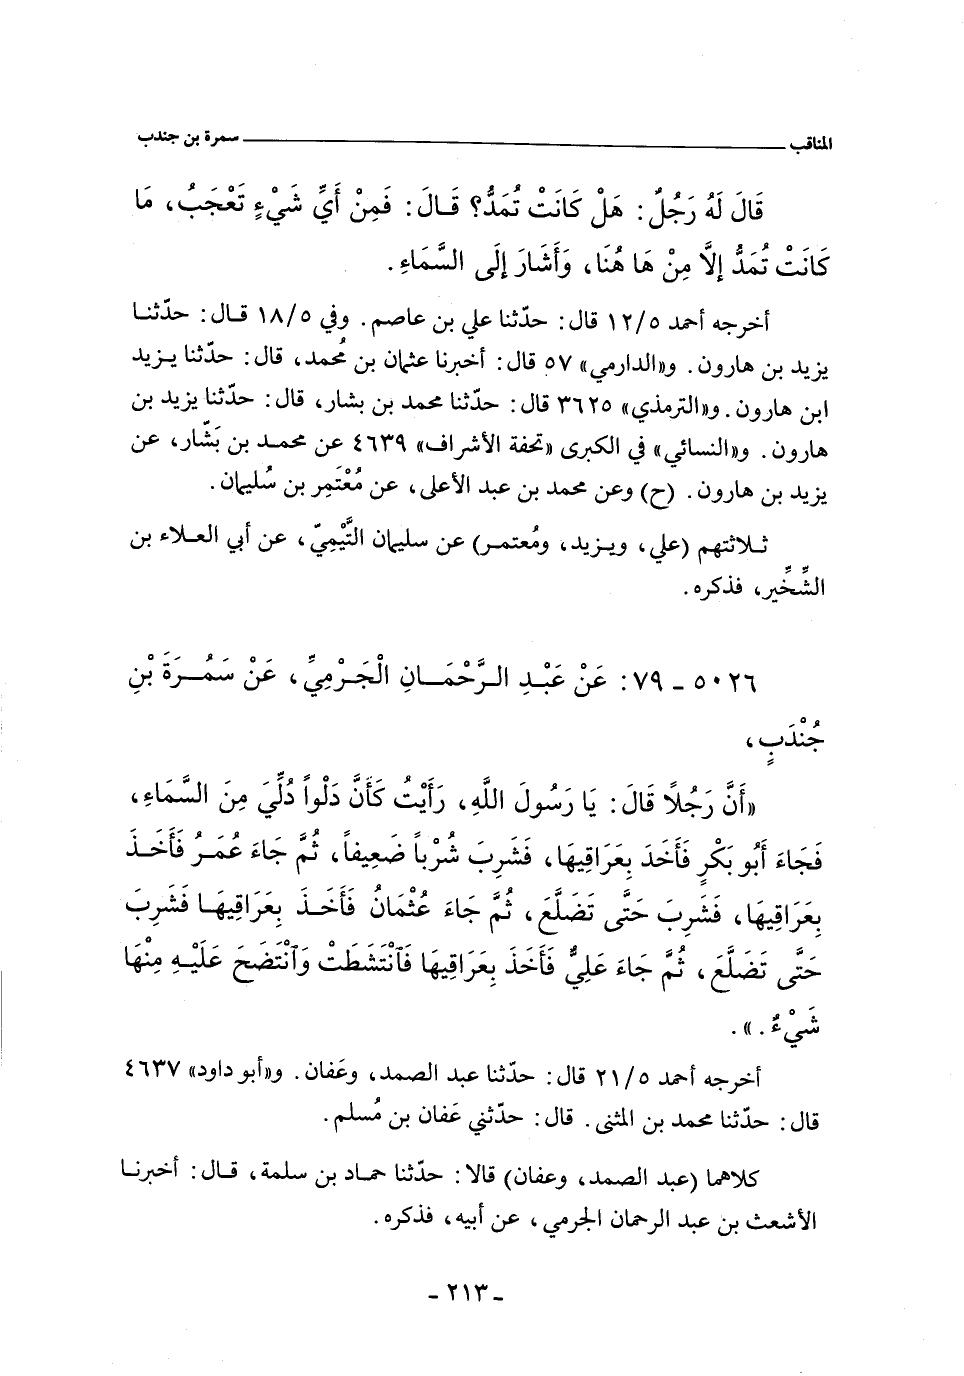 المناقب ــــــــــ سمرة بن جندب
قَالَ لَهُ رَجُلٌ: هَلْ كَانَتْ تُمَدُّ؟ قَالَ: فَمِنْ أَيِّ شَيْءٍ تَعْجَبُ، مَا
كَانَتْ تُمَدُّ إِلَّا مِنْ هَا هُنَا، وَأَشَارَ إِلَى السَّمَاءِ.
أخرجه أحمد ١٢/٥ قال: حدّثنا علي بن عاصم. وفي ١٨/٥ قال: حدّثنا
يزيد بن هارون. و«الدارمي» ٥٧ قال: أخبرنا عثمان بن مُحمد، قال: حدّثنا يزيد
ابن هارون. و«الترمذي» ٣٦٢٥ قال: حدّثنا محمد بن بشار، قال: حدّثنا يزيد بن
هارون. و«النسائي» في الكبرى «تحفة الأشراف» ٤٦٣٩ عن محمد بن بَشَّار، عن
يزيد بن هارون. (ح) وعن محمد بن عبد الأعلى، عن مُعْتَمِر بن سُليمان.
ثلاثتهم (علي، ويزيد، ومُعتمر) عن سليمان التَّيْمِيّ، عن أبي العلاء بن
الشِّخِّير، فذكره.
٥٠٢٦ ـ ٧٩: عَنْ عَبْدِ الرَّحْمَانِ الْجَرْمِيِّ، عَنْ سَمُرَةَ بْنِ
جُنْدَبٍ،
«أَنَّ رَجُلًا قَالَ: يَا رَسُولَ اللَّهِ، رَأَيْتُ كَأَنَّ دَلْواً دُلِّيَ مِنَ السَّمَاءِ،
فَجَاءَ أَبُو بَكْرٍ فَأَخَذَ بِعَرَاقِيهَا، فَشَرِبَ شُرْباً ضَعِيفاً، ثُمَّ جَاءَ عُمَرُ فَأَخَذَ
بِعَرَاقِيهَا، فَشَرِبَ حَتَّى تَضَلَّعَ، ثُمَّ جَاءَ عُثْمَانُ فَأَخَذَ بِعَرَاقِيهَا فَشَرِبَ
حَتَّى تَضَلَّعَ، ثُمَّ جَاءَ عَلِيٌّ فَأَخَذَ بِعَرَاقِيهَا فَٱنْتَشَطَتْ وَٱنْتَضَحَ عَلَيْهِ مِنْهَا
شَيْءٌ.».
أخرجه أحمد ٢١/٥ قال: حدّثنا عبد الصمد، وعَفان. و«أبو داود» ٤٦٣٧
قال: حدّثنا محمد بن المثنى. قال: حدّثني عَفان بن مُسلم.
كلاهما (عبد الصمد، وعفان) قالا: حدّثنا حماد بن سلمة، قال: أخبرنا
الأشعث بن عبد الرحمان الجرمي، عن أبيه، فذكره.
ـ ٢١٣ ـ